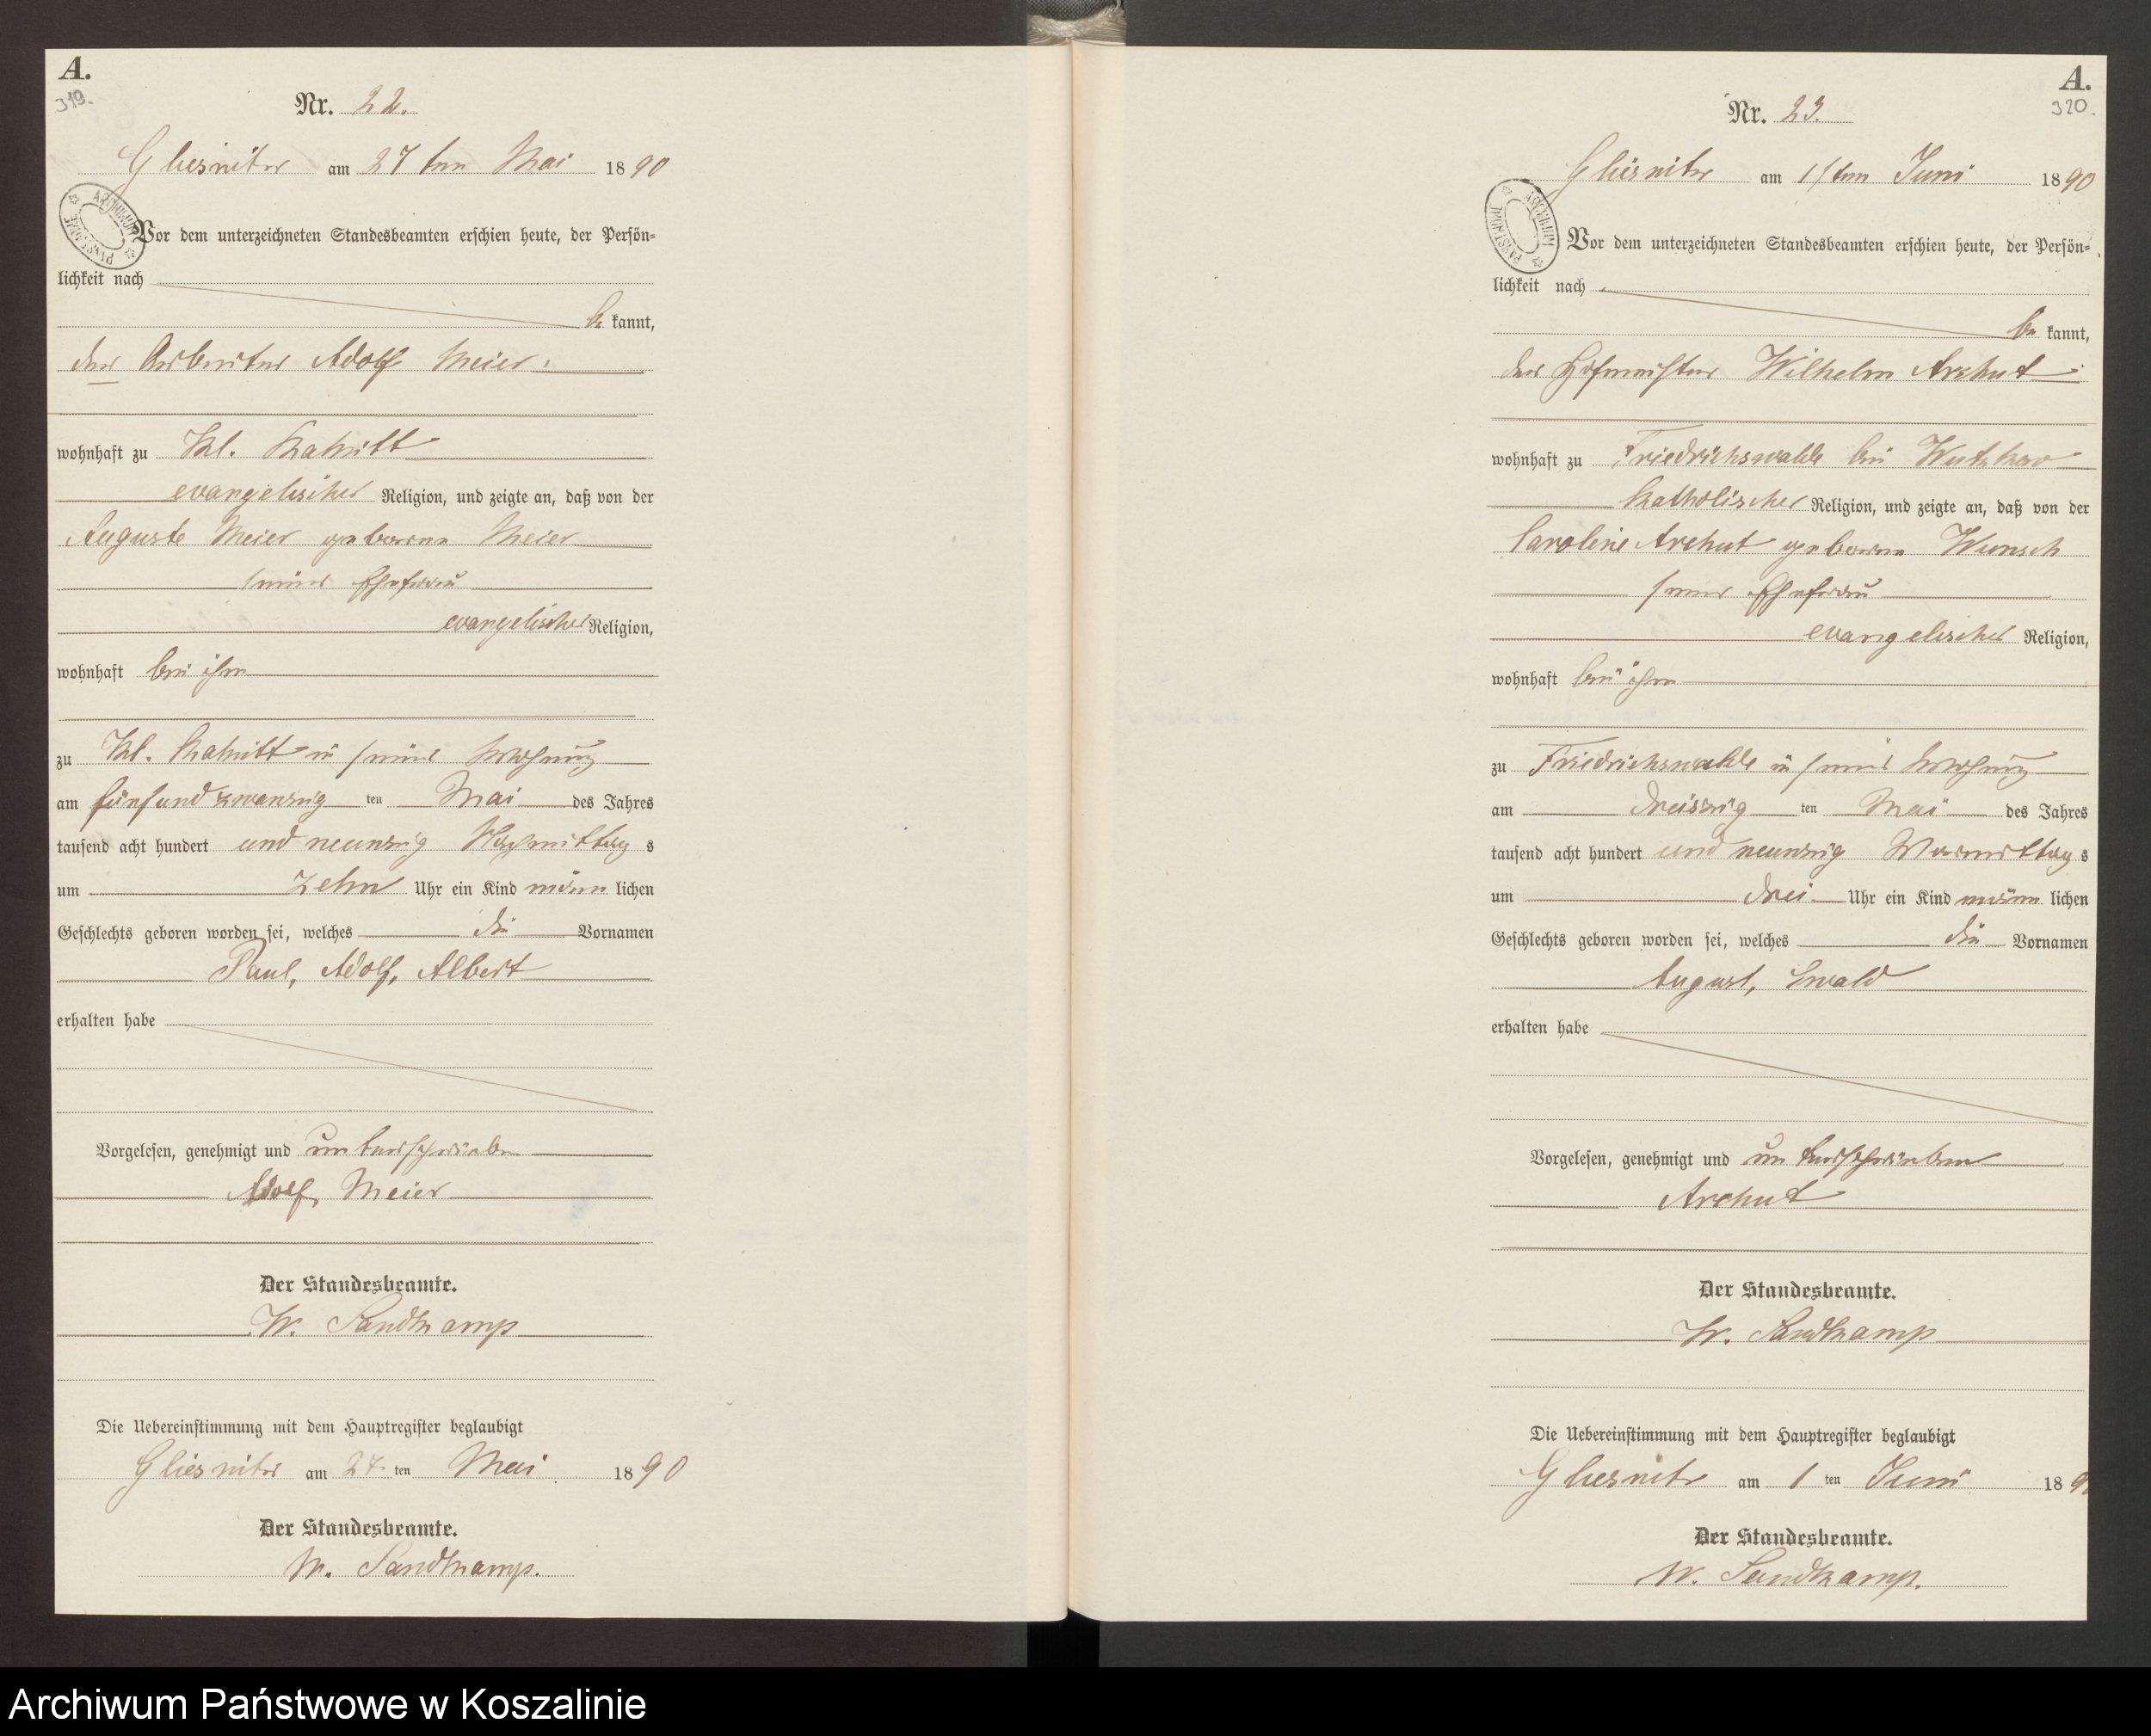 A.
319.
Nr. 22.
Gliesnitz am 27 ten Mai 1890
Vor dem unterzeichneten Standesbeamten erschien heute, der Persön=
lichkeit nach
be kannt,
der Arbeiter Adolf Meier
wohnhaft zu Kl. Nakritt
evangelischer Religion, und zeigte an, daß von der
Auguste Meier geborene Meier
seiner Ehefrau
evangelischer Religion,
wohnhaft bei ihm
zu Kl. in seiner Wohnung
am fünfundzwanzig ten Mai des Jahres
tausend acht hundert und neunzig Nachmittag s
um zehn Uhr ein Kind männ lichen
Geschlechts geboren worden sei, welches die Vornamen
Paul, Adolf, Albert
erhalten habe
Vorgelesen, genehmigt und unterschrieben
Adolf Meier
Der Standesbeamte.
W. Sandkamp
Die Uebereinstimmung mit dem Hauptregister beglaubigt
Gliesnitz am 27. ten Mai 1890
Der Standesbeamte.
W. Sandkamp.
A.
320.
Nr. 23.
Gliesnitz am 1sten Juni 1890
Vor dem unterzeichneten Standesbeamten erschien heute, der Persön=
lichkeit nach
be kannt,
der Hofmeister Wilhelm Archut
wohnhaft zu Friedrichswalde bei Wutzkow
katholischer Religion, und zeigte an, daß von der
Caroline Archut geborene Wunsch
seiner Ehefrau
evangelischer Religion,
wohnhaft bei ihm
zu Friedrichswalde in seiner Wohnung
am dreiszig ten Mai des Jahres
tausend acht hundert und neunzig Vormittag s
um drei Uhr ein Kind männ lichen
Geschlechts geboren worden sei, welches die Vornamen
August, Ewald
erhalten habe
Vorgelesen, genehmigt und unterschrieben
Archut
Der Standesbeamte.
W. Sandkamp
Die Uebereinstimmung mit dem Hauptregister beglaubigt
Gliesnitz am 1 ten Juni 189
Der Standesbeamte.
W. Sandkamp.
Archiwum Państwowe w Koszalinie